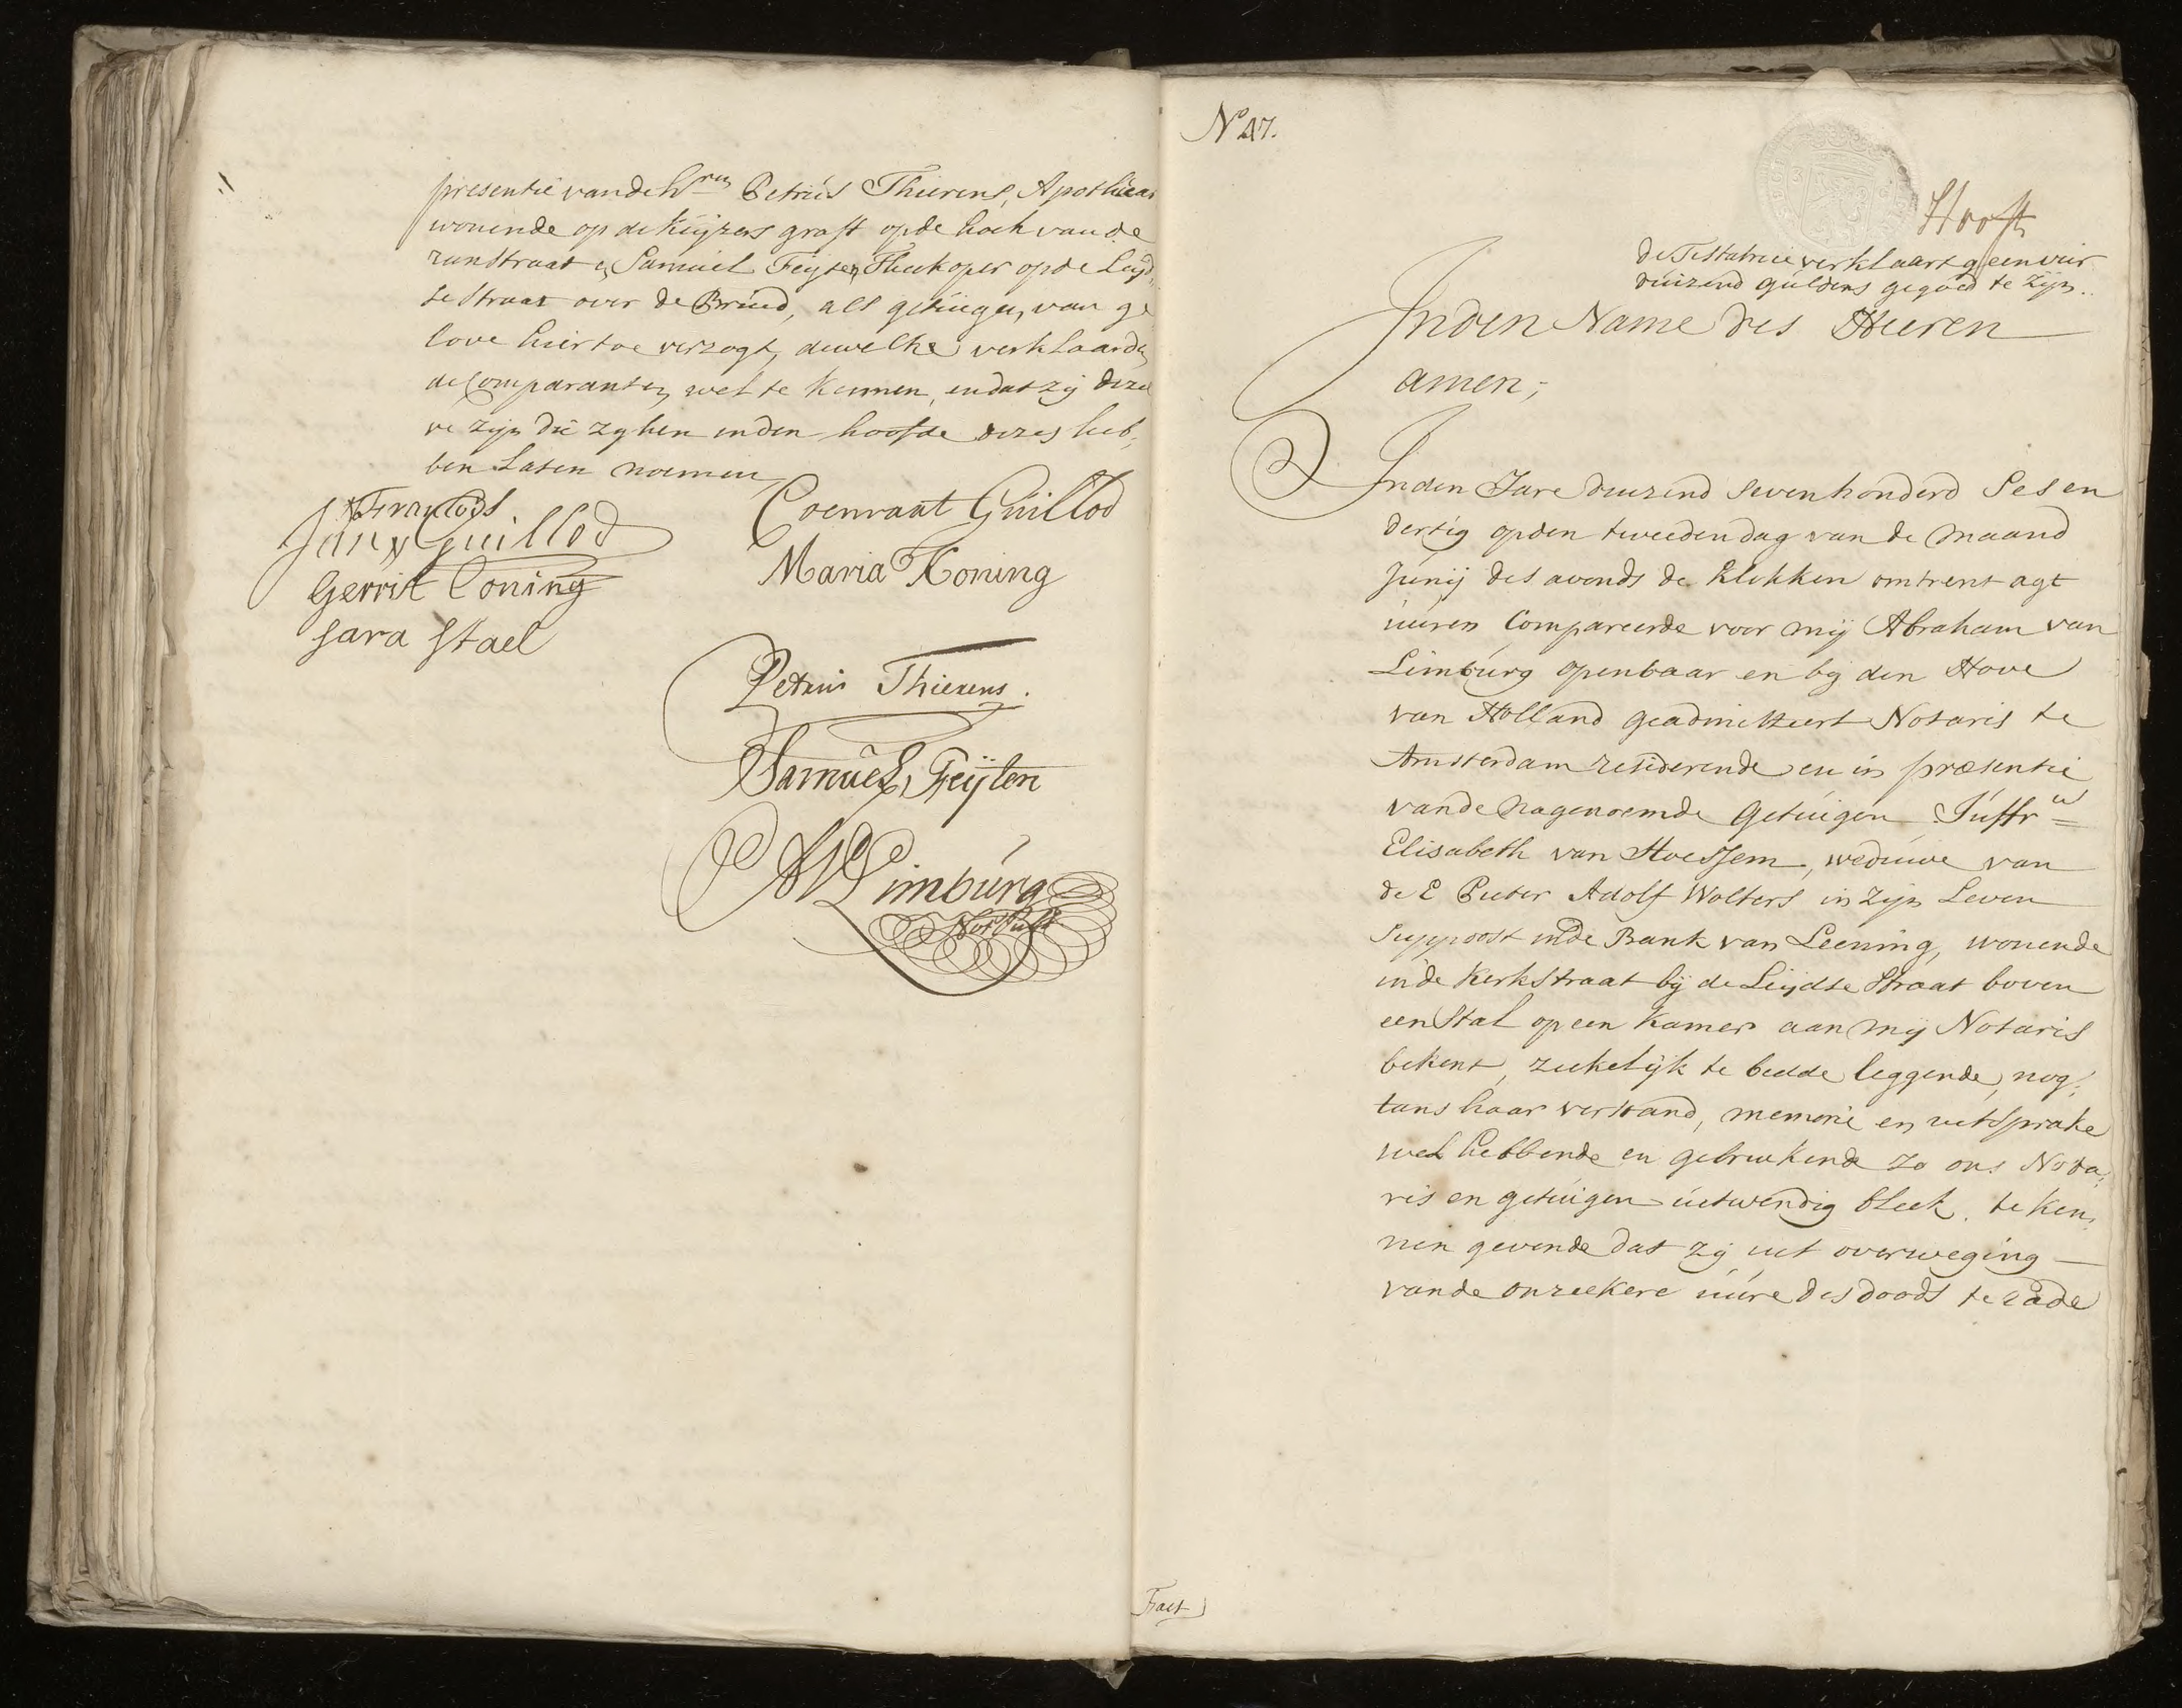 presentie van de hren Petrus Thierens, Apothecar
wonende op de Keijzers graft op de hoek van de
runstraat en Samuel Feijten Theekoper op de Leijd,
se straat over de Brued, als getuigen, van ge
love hier toe verzogt, dewelke verklaarden
de Comparanten wel te kennen, en dat zij dezel
ve zijn die zij hen in den hoofde dezes heb,
ben laten noemen
Francois
Jan Guillod
Coenraat Guillod
Gerrit Coning
Maria Koning
sara stael
Petrus Thierens.
Samuel Feijten
AVLimburg
Not Publ
No 47.
Hooft
de Testatrice verklaart geen vier
duizend guldens gegoed te zijn..
In den Name des Heeren
amen;
In den Jare duizend sevenhonderd Ses en
dertig op den tweeden dag van de maand
Junij des avonds de klokken omtrent agt
uuren Compareerde voor mij Abraham van
Limburg openbaar en bij den Hove
van Holland geadmitteert Notaris te
Amsterdam residerende en in præsentie
van de nagenoemde Getuigen Juffrw
Elisabeth van Hoessem, weduwe van
de E Pieter Adolf Wolters in zijn Leven
Suppoost in de Bank van Leening, wonende
in de Kerkstraat bij de Leijdse Straat boven
een Stal op een Kamer aan mij Notaris
bekent, ziekelijk te bedde leggende, nog,
tans haar verstand, memorie en uitsprake
wel hebbende en gebruikende zo ons Nota,
ris en getuigen uitwendig bleek. te ken,
nen gevende dat zij uit overweging
van de onzeekere uure des doods te rade
Fact